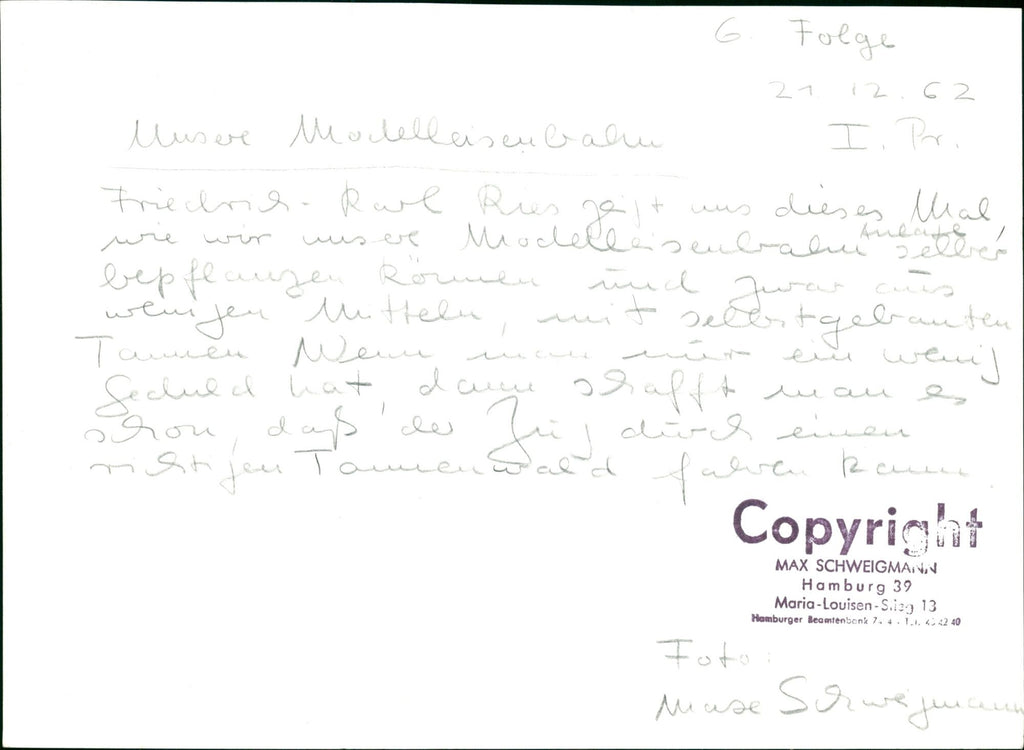 6. Folge
21. 12. 62
Unsere Modelleisenbahn I. Pr.
Friedrich-Karl Ries zeigt uns dieses Mal,
wie wir unsere Modelleisenbahn Anlage selber
bepflanzen können und zwar aus
wenigen Mitteln, mit selbstgebauten
Tannen Wenn man nur ein wenig
Geduld hat, dann schafft man es
schon, daß der Zug durch einen
richtigen Tannenwald fahren kann
Copyright
MAX SCHWEIGMANN
Hamburg 39
Maria-Louisen-Stieg 13
Hamburger Beamtenbank
Foto:
Max Schweigmann